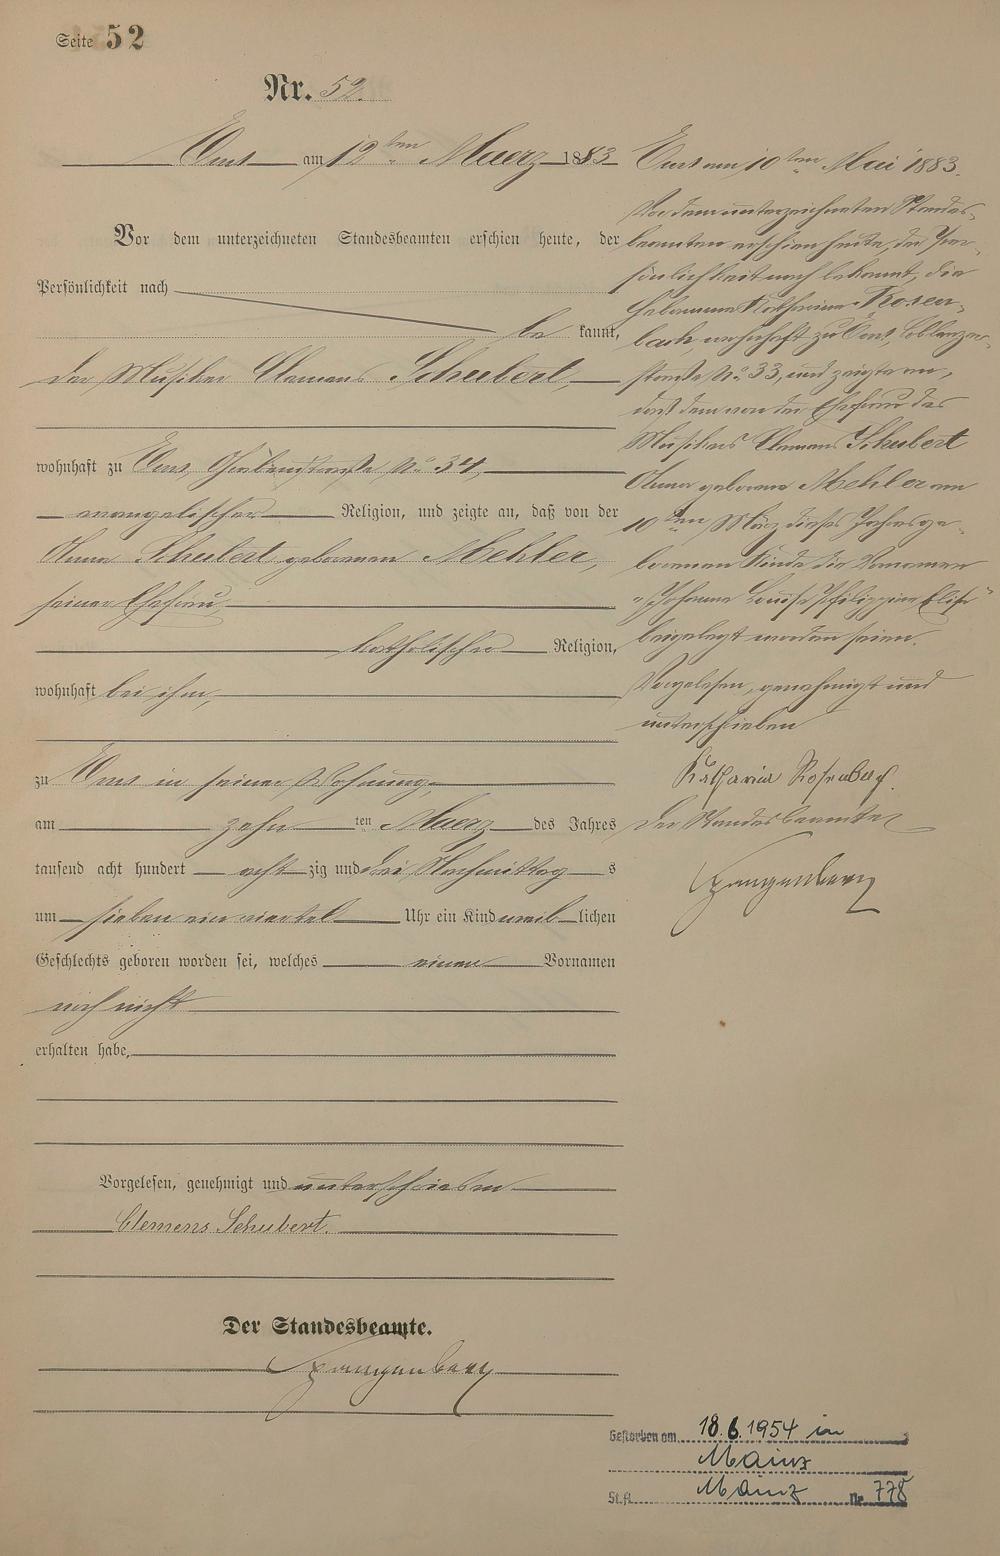 Seite 52
Nr. 52.
Ems am 12ten Maerz 1883
Vor dem unterzeichneten Standesbeamten erschien heute, der
Persönlichkeit nach
be kannt,
der Musiker Clemens Schubert,
wohnhaft zu Ems, Grabenstraße No. 34,
evangelischer Religion, und zeigte an, daß von der
Anna Schubert geborenen Mehler,
seiner Ehefrau
katholischer Religion,
wohnhaft bei ihm,
zu Ems in seiner Wohnung,
am zehn ten Maerz des Jahres
tausend acht hundert acht zig und drei Nachmittag s
um sieben ein viertel Uhr ein Kind weib lichen
Geschlechts geboren worden sei, welches einen Vornamen
noch nicht
erhalten habe,
Vorgelesen, genehmigt und unterschrieben
Clemens Schubert.
Der Standesbeamte.
Ems am 10ten Mai 1883.
Vor dem unterzeichneten Standes-
beamten erschien heute, der Per-
sönlichkeit nach bekannt, die
Hebamme Katharina Rosen-
bach, wohnhaft zu Ems, Coblenzer-
straße No. 33, und zeigte an,
daß dem von der Ehefrau des
Musikers Clemens Schubert
Anna geborene Mehler am
10ten März dieses Jahres ge-
borenen Kinde die Vornamen
"Johanna Louise Philippine Elise"
beigelegt worden seien.
Vorgelesen, genehmigt und
unterschrieben
Katharina Rosenbach.
Der Standesbeamte
Gestorben am 18.6.1954 in
Mainz
St.A. Mainz Nr. 778